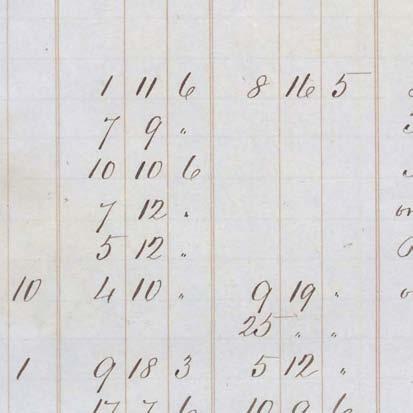 1 11 6 8 16 5
7 9 "
10 10 6
7 12 "
5 12 "
10 4 10 " 9 19 "
25 " "
1 9 18 3 5 12 "
17 7 6 10 9 6